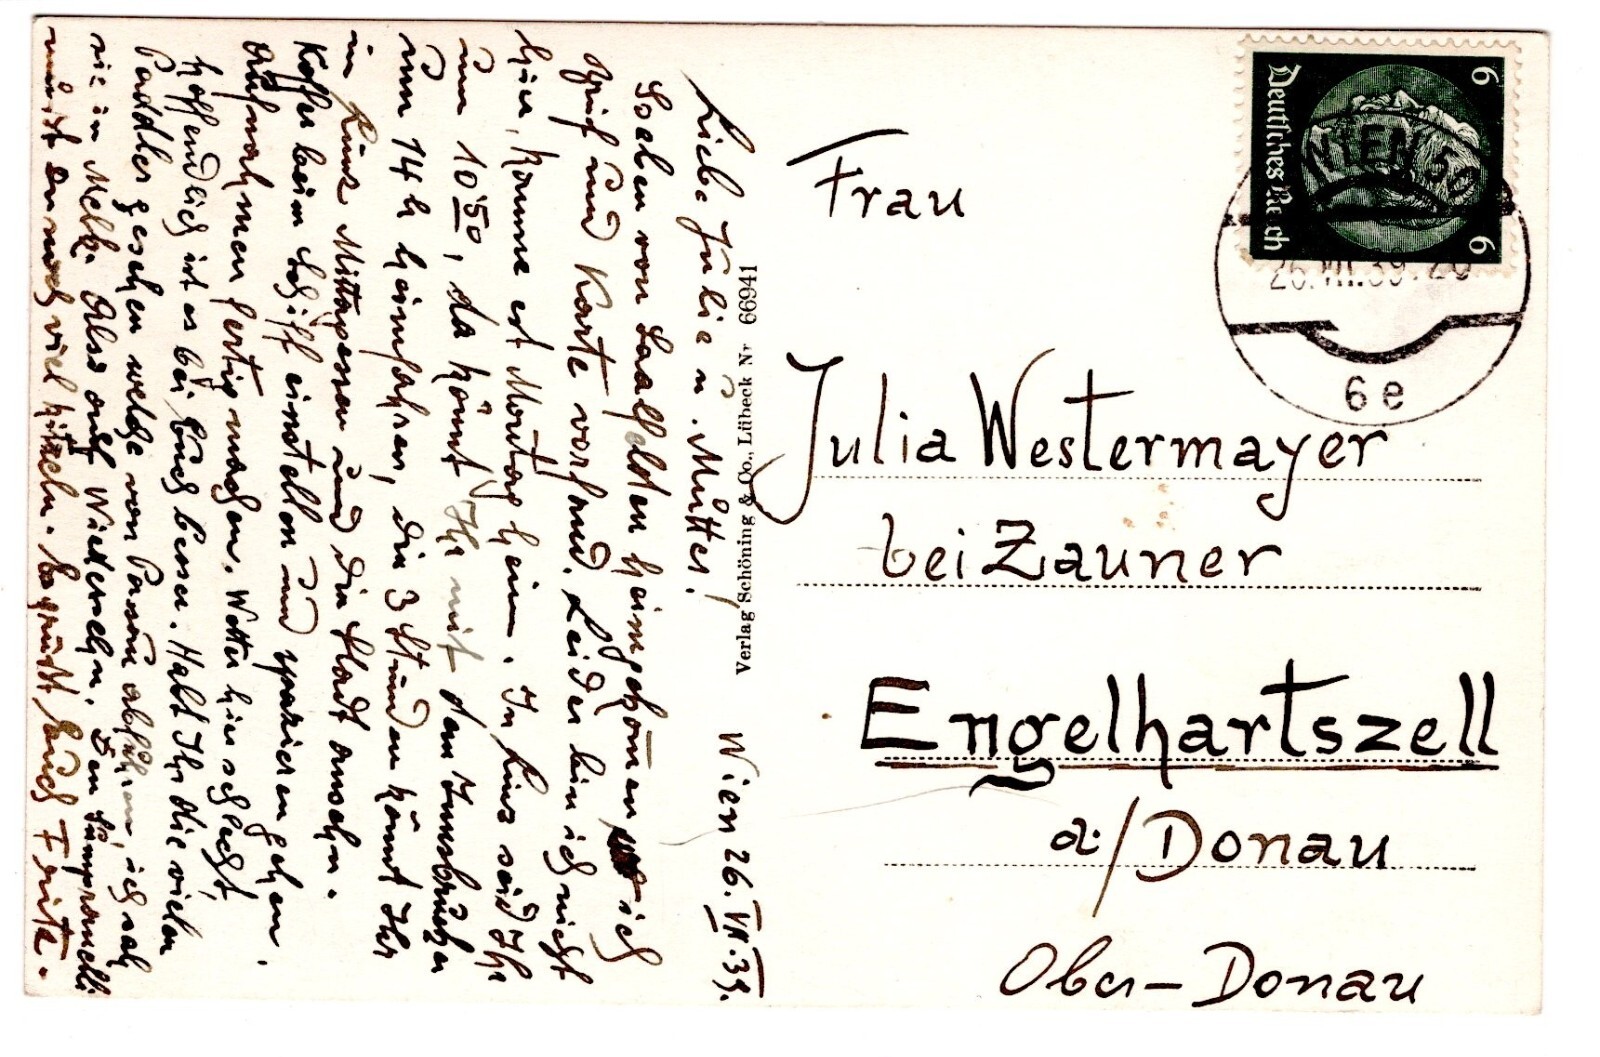 Wien 26. VII. 39.
Liebe Julie u. Mutter!
Soeben von Saalfelden heimgekommen ich
Brief und Karte vorfand. Leider bin ich nicht
hier, komme erst Montag heim. In Linz seid Ihr
um 10 50, da könnt Ihr mit dem Innsbrucker
um 14 h heimfahren, die 3 Stunden könnt Ihr
in Linz Mittagessen und die Stadt ansehn.
Koffer beim Schiff einstellen und spazieren gehen.
Aufnahmen fertig machen. Wetter hier schlecht,
hoffendlich ist es bei Euch besser. Habt Ihr die vielen
Paddler gesehen welche von Passau abfuhren, ich sah
sie in Melk. Also auf Wiedersehn. Den
müsst Ihr noch viel Es grüsst Euch Fritz.
Verlag Schöning & Co., Lübeck Nr 66941
Frau
Julia Westermayer
bei Zauner
Engelhartszell
a/Donau
Ober-Donau
Deutsches Reich
6
6
WIEN 50
26.VII.39.20
6e